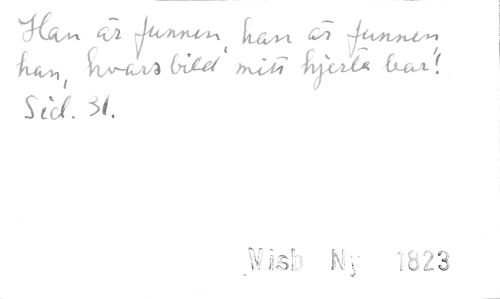 Han är funnen, han är funnen,
han, hvars bild mitt hjerta bar!
Sid. 31.
Visb Ny 1823